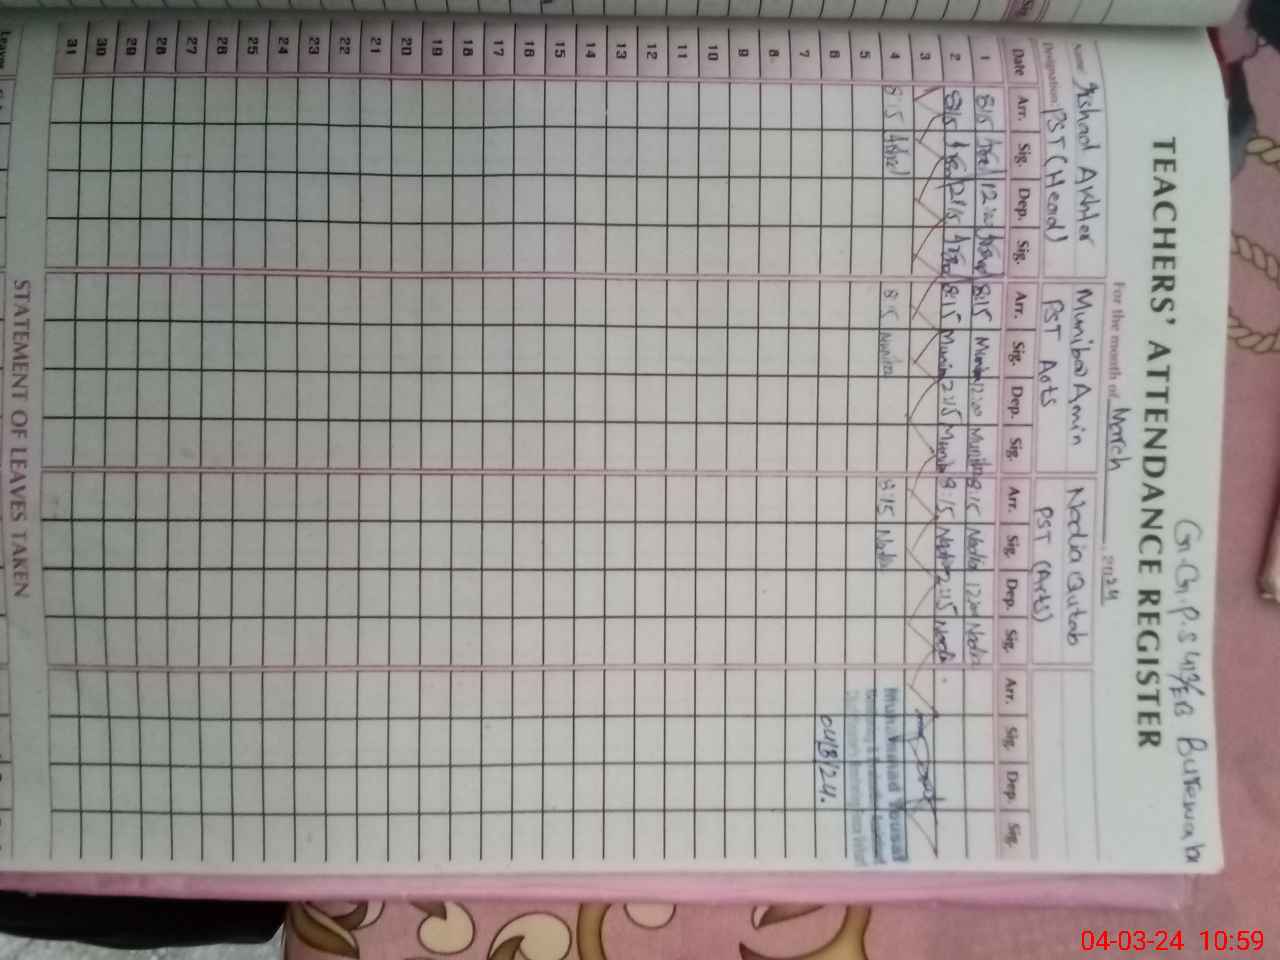 TEACHERS' ATTENDANCE REGISTER
For the month of March, 2024
Name Arshad Akhter Muniba Amin Nadia Qutab
Designation: PST (Head) PST Arts PST (Arts)
Date Arr. Sig. Dep. Sig. Arr. Sig. Dep. Sig. Arr. Sig. Dep. Sig. Arr. Sig. Dep. Sig.
1 8:15 12:00 8:15 Muniba 12:00 Muniba 8:15 Nadia 12:00 Nadia
2 8:15 2:15 8:15 Muniba 2:15 Muniba 8:15 Nadia 2:15 Nadia
3
4 8:15 8:15 Muniba 8:15 Nadia
5
6 04/3/24.
7
8
9
10
11
12
13
14
15
16
17
18
19
20
21
22
23
24
25
26
27
28
29
30
31
STATEMENT OF LEAVES TAKEN
Leave
04-03-24 10:59